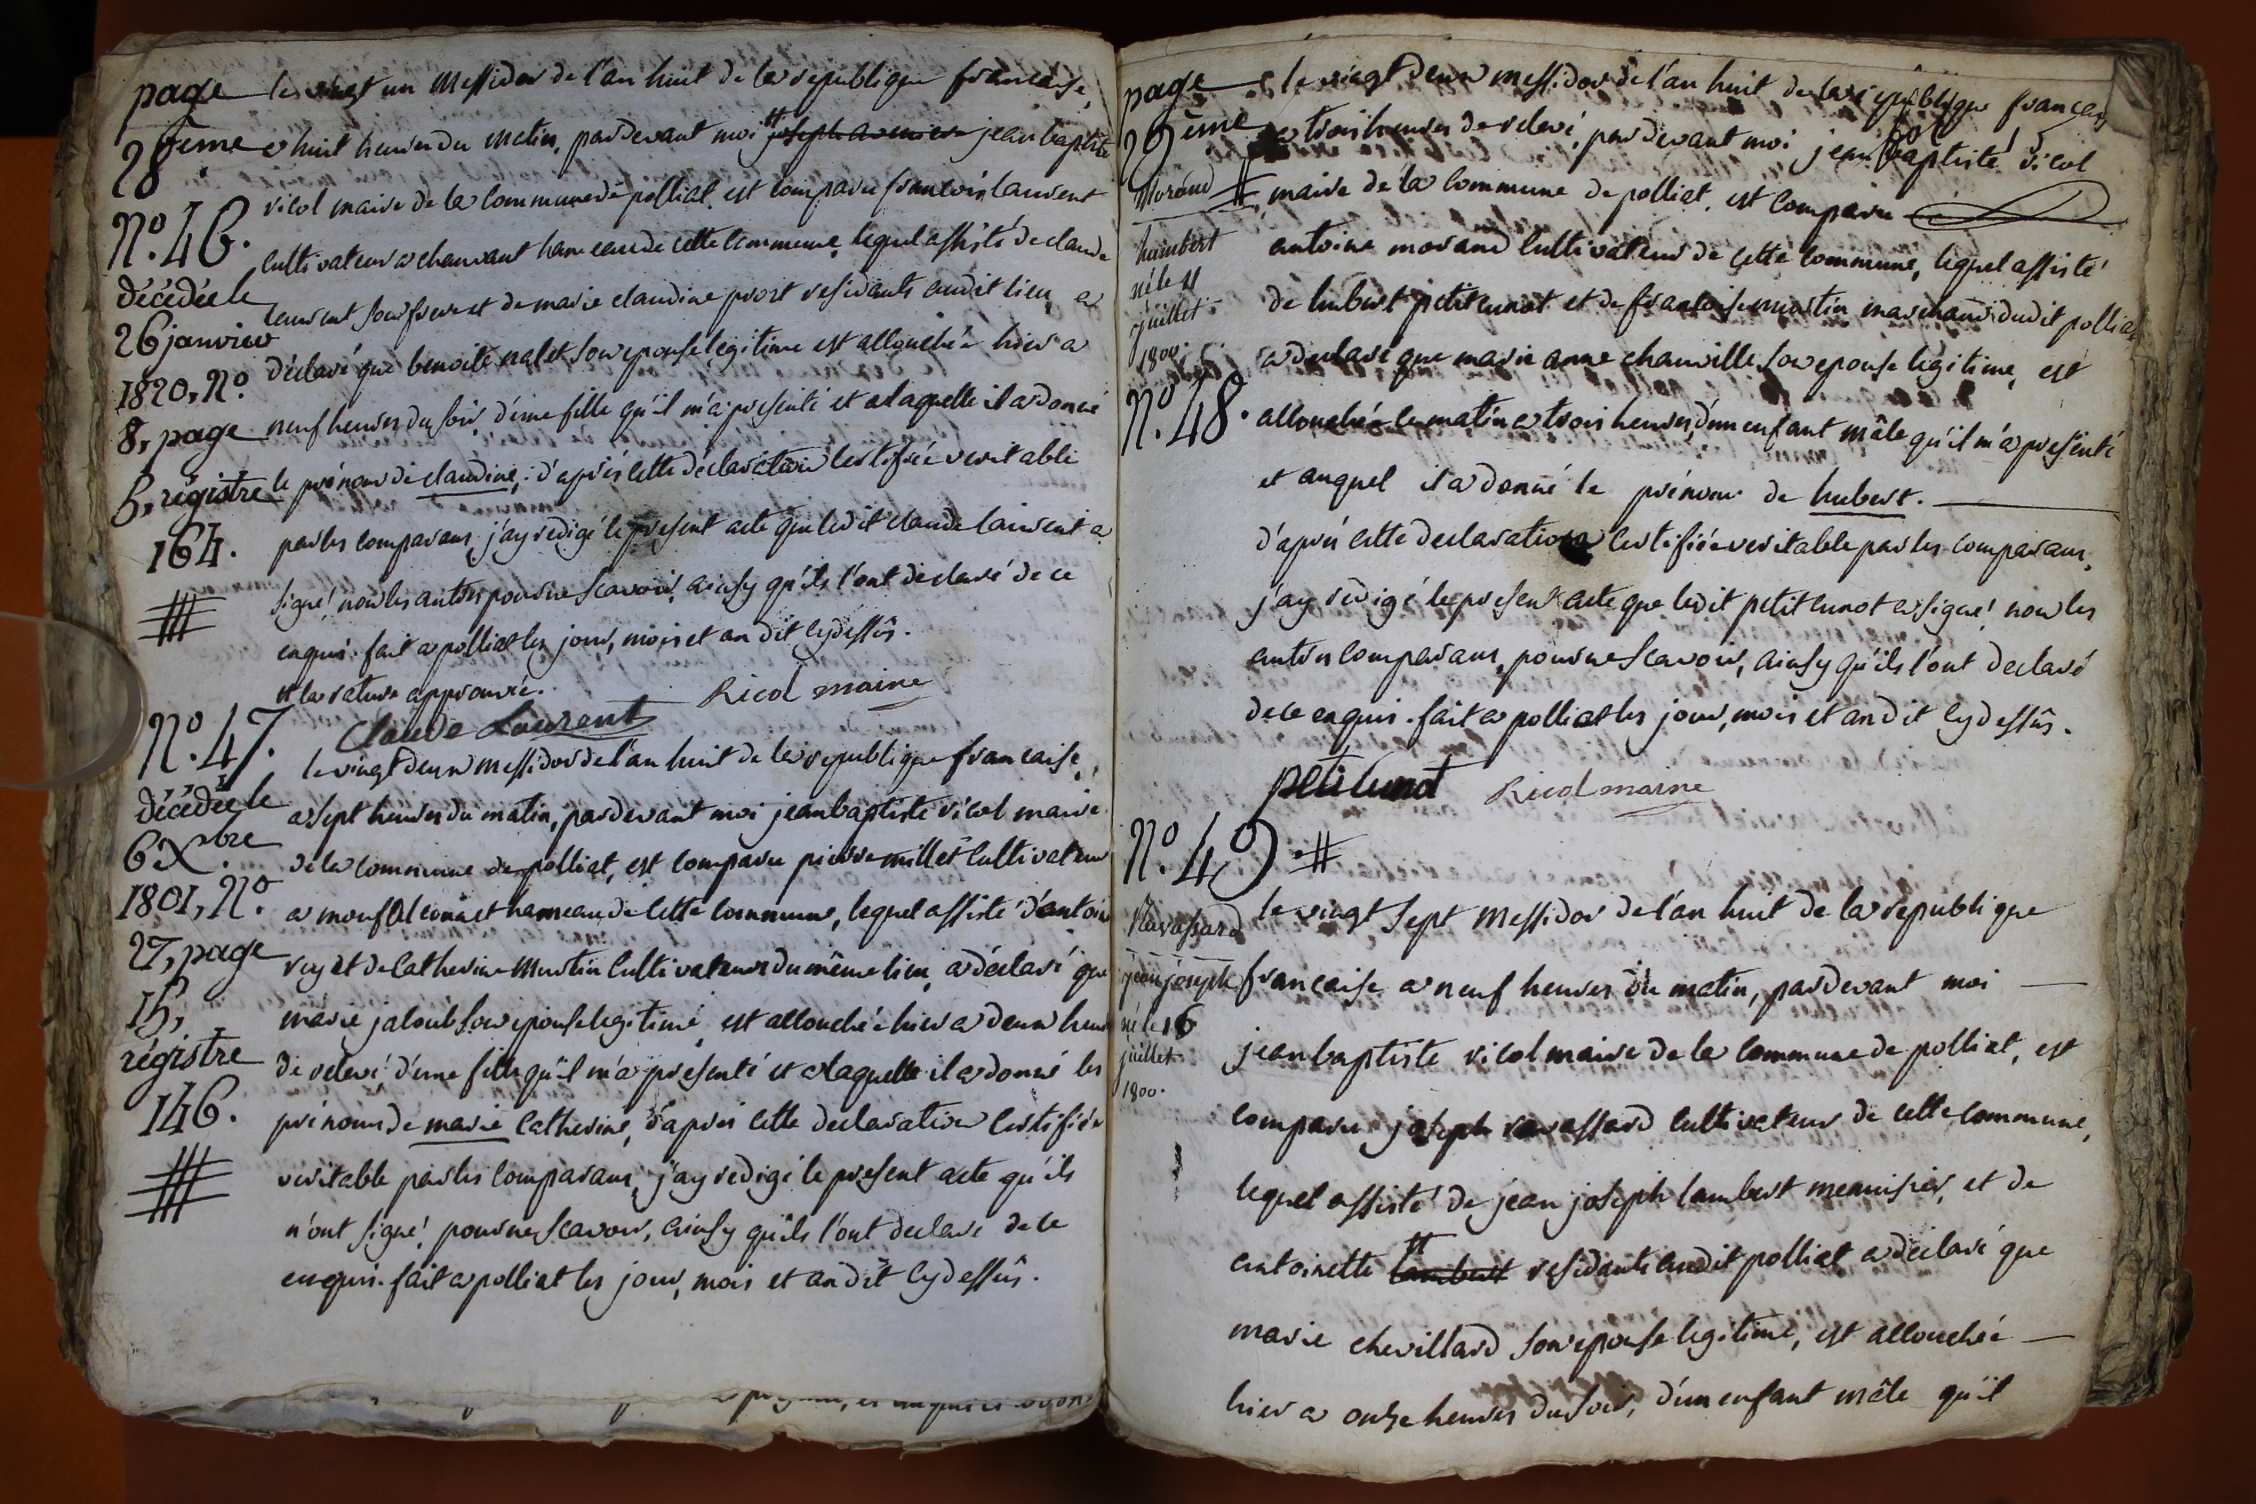 page
28ème
N°. 46.
décédée le
26 janvier
1820, N°
8, page
5, régistre
164.
le vingt un Messidor de l'an huit de la republique francaise,
a huit heures du matin, pardevant moi jean baptiste
ricol maire de la commune de polliat, est comparu francois laurent
cultivateur a chanvant hameau de cette commune, lequel assisté de claude
laurent son frere et de marie claudine prost residants audit lieu, a
déclaré que benoite nalet son epouse legitime est accouchée hier a
neuf heures du soir, d'une fille qu'il m'a presenté et a laquelle il a donné
le prénom de claudine, d'après cette déclaration certifiée veritable
par les comparans, j'ay redigé le present acte que ledit claude laurent a
signé, non les autres pour ne scavoir, ainsy qu'ils l'ont declaré de ce
enquis. fait a polliat les jour, mois et an dit cy dessûs.
# la rature approuvée.
Claude Laurent Ricol maire
N°. 47.
décédée le
6 Xbre.
1801, N°.
27, page
15,
régistre
146.
le vingt deux messidor de l'an huit de la republique francaise,
a sept heures du matin, pardevant moi jean baptiste ricol maire
de la commune de polliat, est comparu pierre millet cultivateur
a hameau de cette commune, lequel assisté d'antoine
ruyet de Catherine Mustin cultivateurs du même lieu, a déclaré que
marie jaloub son epouse legitime, est accouchée hier a deux heures
de relevé, d'une fille qu'il m'a presenté et a laquelle il a donné les
prénoms de marie Catherine, d'aprés cette declaration certifiée
veritable par les comparans, j'ay redigé le present acte qu'ils
n'ont signé, pour ne scavoir, ainsy qu'ils l'ont declaré de ce
enquis. fait a polliat les jour, mois et an dit cy dessûs.
page
29ème
Morand
humbert
né le 11
juillet
1800.
N°. 48.
le vingt deux messidor de l'an huit de la republique francaise
a trois heures de relevé, pardevant moi jean baptiste ricol
maire de la commune de polliat, est comparu
antoine morand cultivateur de cette commune, lequel assisté
de hubert petit cunot et de francoise mustin marchands dudit polliat
a declaré que marie anne chanville son epouse legitime, est
accouchée ce matin a trois heures, d'un enfant mâle qu'il m'a presenté
et auquel il a donné le prénom de hubert.
d'aprés cette declaration certifiée veritable par les comparans,
j'ay redigé le present acte que ledit petit cunot a signé, non les
autres comparans, pour ne scavoir, ainsy qu'ils l'ont declaré
de ce enquis. fait a polliat les jour, mois et an dit cy dessûs.
petit cunot Ricol maire
N°. 49. #
Ravassard
jean joseph
né le 16
juillet
1800.
le vingt sept Messidor de l'an huit de la republique
francaise a neuf heures du matin, pardevant moi
jean baptiste ricol maire de la commune de polliat, est
comparu joseph ravassard cultivateur de cette commune,
lequel assisté de jean joseph lambert menuisier, et de
antoinette lambert residants audit polliat a declaré que
marie chevillard son epouse legitime, est accouchée
hier a onze heures du soir, d'un enfant mâle qu'il